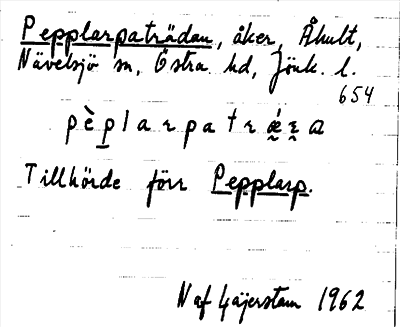 Pepplarpaträdan, åker, Åhult,
Nävelsjö sn, Östra hd, Jönk. l.
654
pèplarpatræ̀ɛa
Tillhörde förr Pepplarp.
N af Gäjerstam 1962